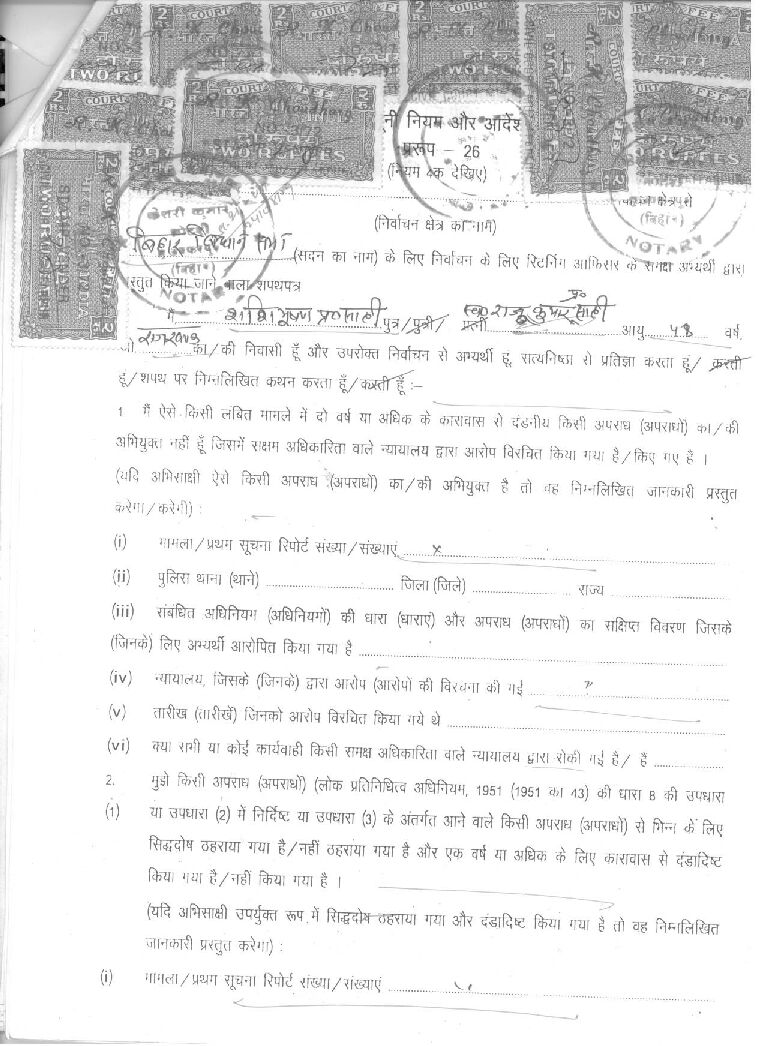 2 RS. COURT FEE
TWO RUPEES
नी नियम और आदेश
प्ररूप – 26
(नियम 4क देखिए)
(निर्वाचन क्षेत्र का नाम)
बिहार विधान सभा (सदन का नाम) के लिए निर्वाचन के लिए रिटर्निंग आफिसर के समक्ष अभ्यर्थी द्वारा
प्रस्तुत किया जाने वाला शपथपत्र
मैं शशि भूषण प्र० साही पुत्र/पुत्री/पत्नी स्व० राजू कुमार प्र० साही आयु 48 वर्ष,
जो का/की निवासी हूँ और उपरोक्त निर्वाचन से अभ्यर्थी हूं, सत्यनिष्ठा से प्रतिज्ञा करता हूं/ करती
हूं/शपथ पर निम्नलिखित कथन करता हूँ/करती हूँ :–
1 मैं ऐसे किसी लंबित मामले में दो वर्ष या अधिक के कारावास से दंडनीय किसी अपराध (अपराधों) का/की
अभियुक्त नहीं हूँ जिसमें सक्षम अधिकारिता वाले न्यायालय द्वारा आरोप विरचित किया गया है/किए गए हैं ।
(यदि अभिसाक्षी ऐसे किसी अपराध (अपराधों) का/की अभियुक्त है तो वह निम्नलिखित जानकारी प्रस्तुत
करेगा/करेगी) :
(i) मामला/प्रथम सूचना रिपोर्ट संख्या/संख्याएं x
(ii) पुलिस थाना (थाने) जिला (जिले) राज्य
(iii) संबंधित अधिनियम (अधिनियमों) की धारा (धाराएं) और अपराध (अपराधों) का संक्षिप्त विवरण जिसके
(जिनके) लिए अभ्यर्थी आरोपित किया गया है
(iv) न्यायालय, जिसके (जिनके) द्वारा आरोप (आरोपों की विरचना की गई
(v) तारीख (तारीखें) जिनको आरोप विरचित किया गये थे
(vi) क्या सभी या कोई कार्यवाही किसी समक्ष अधिकारिता वाले न्यायालय द्वारा रोकी गई है/ हैं
2. मुझे किसी अपराध (अपराधों) (लोक प्रतिनिधित्व अधिनियम, 1951 (1951 का 43) की धारा 8 की उपधारा
(1) या उपधारा (2) में निर्दिष्ट या उपधारा (3) के अंतर्गत आने वाले किसी अपराध (अपराधों) से भिन्न के लिए
सिद्धदोष ठहराया गया है/नहीं ठहराया गया है और एक वर्ष या अधिक के लिए कारावास से दंडादिष्ट
किया गया है/नहीं किया गया है ।
(यदि अभिसाक्षी उपर्युक्त रूप में सिद्धदोष ठहराया गया और दंडादिष्ट किया गया है तो वह निम्नलिखित
जानकारी प्रस्तुत करेगा) :
(i) मामला/प्रथम सूचना रिपोर्ट संख्या/संख्याएं
NOTARY
(बिहार)
NOTARY
(बिहार)